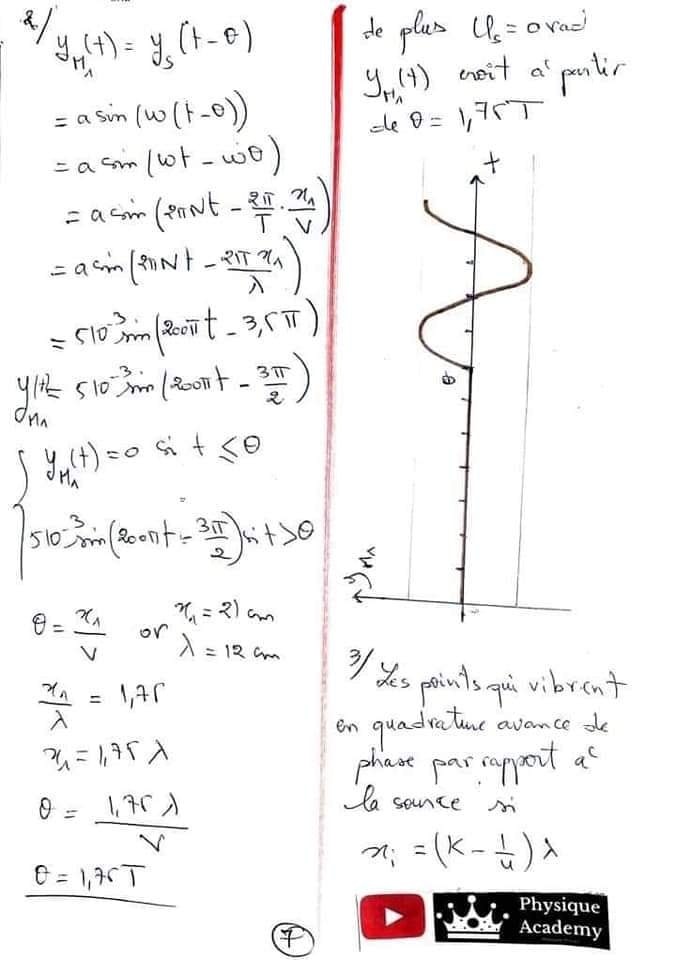 2/ y_M₁(t) = y_s(t-θ)
= a sin(w(t-θ))
= a sin(wt - wθ)
= a sin(2πNt - 2π/T . x₁/V)
= a sin(2πNt - 2πx₁/λ)
= 5 10⁻³ sin(200πt - 3,5π)
y_M₁(t) = 5 10⁻³ sin(200πt - 3π/2)
{ y_M₁(t) = 0 si t ≤ θ
5 10⁻³ sin(200πt - 3π/2) si t > θ
θ = x₁/V or x₁ = 21 cm
λ = 12 cm
x₁/λ = 1,75
x₁ = 1,75 λ
θ = 1,75 λ/V
θ = 1,75 T
de plus φs = 0 rad
y_M₁(t) croît à partir
de θ = 1,75T
t
θ
y_M₁
3/ Les points qui vibrent
en quadrature avance de
phase par rapport à
la source si
xᵢ = (K - 1/4) λ
7
Physique
Academy